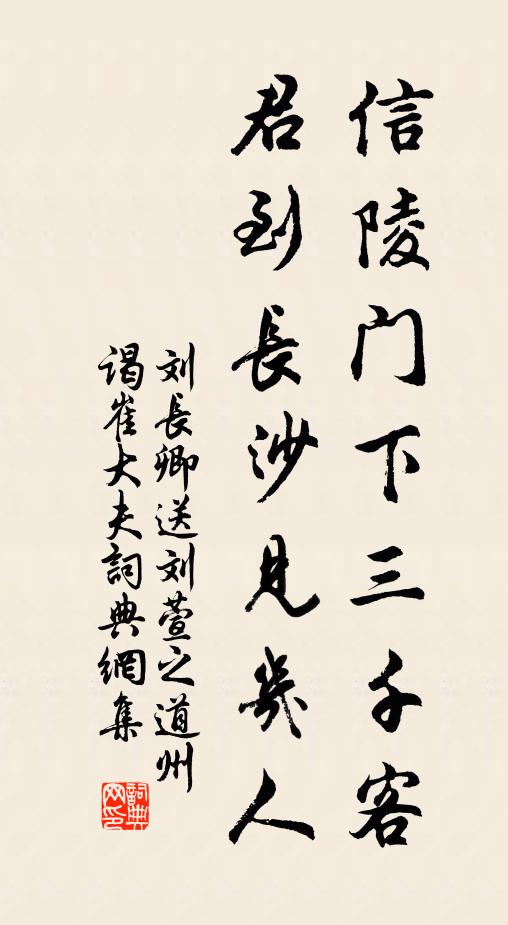 信陵門下三千客
君到長沙見幾人
刘長卿送刘萱之道州
謁崔大夫詞典網集
詞典网印